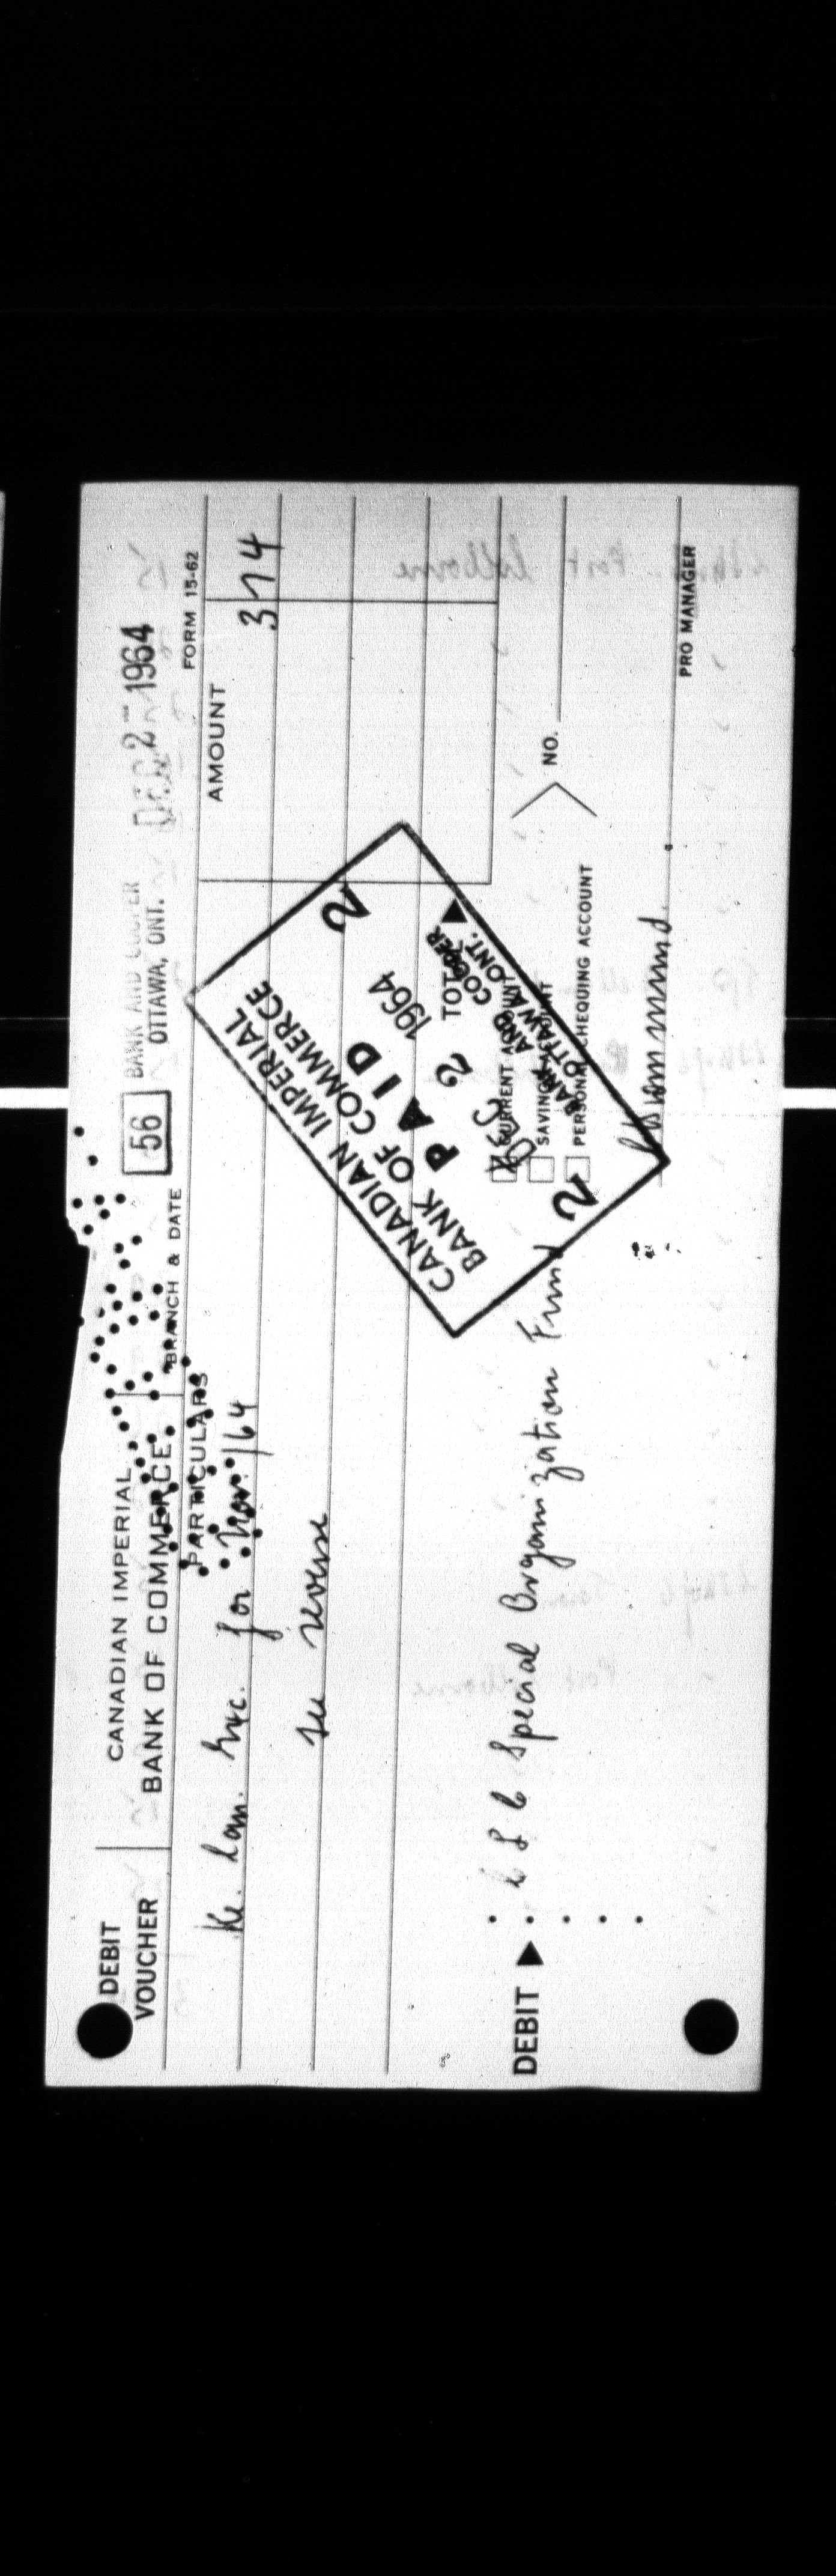 DEBIT
VOUCHER
CANADIAN IMPERIAL
BANK OF COMMERCE
56
BANK AND COOPER
OTTAWA, ONT.
DEC 2 - 1964
BRANCH & DATE
FORM 15-62
PARTICULARS
AMOUNT
Re. Com. Exc. for Nov./64
3 74
see reverse
CANADIAN IMPERIAL
BANK OF COMMERCE
2 PAID 2
DEC 2 1964
BANK AND COOPER
OTTAWA, ONT.
TOTAL
DEBIT
Special Organization Fund
CURRENT ACCOUNT
SAVINGS ACCOUNT
PERSONAL CHEQUING ACCOUNT
NO.
PRO MANAGER